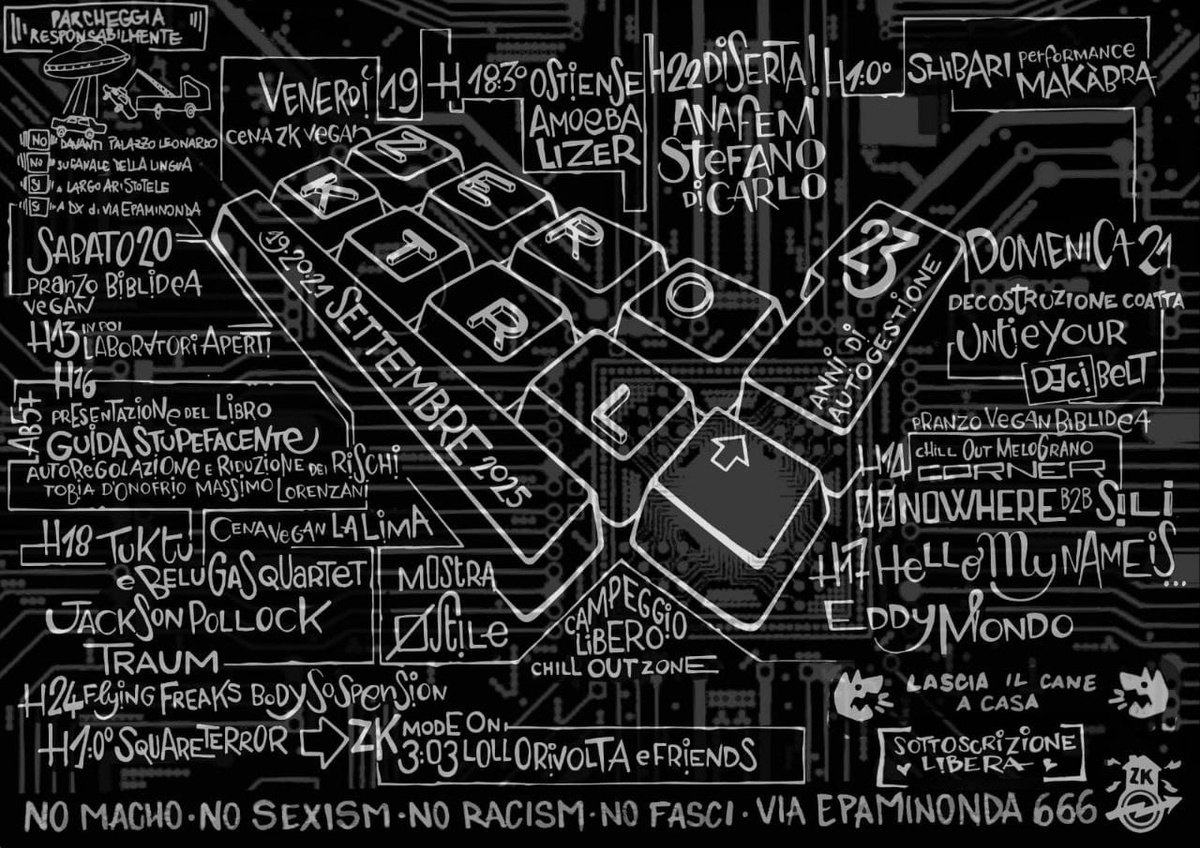 PARCHEGGIA
RESPONSABILMENTE
NO DAVANTI PALAZZO LEONARDO
NO SU CANALE DELLA LINGUA
SI A LARGO ARISTOTELE
SI A DX di VIA EPAMINONDA
VENERDÍ 19
CENA ZK VEGAN
H 18:30 OSTIENSE
AMOEBA
LIZER
H22 DISERTA!
ANAFEM
STEFANO
Di CARLO
H1:00 SHIBARI PERFORMANCE
MAKÀBRA
Z E R O
K T R L
19·20·21 SETTEMBRE 2025
23
ANNI DI
AUTOGESTIONE
SABATO 20
PRANZO BIBLIDEA
VEGAN
H13 IN POI
LABORATORI APERTI
H16
LAB57
PRESENTAZIONE DEL LIBRO
GUIDA STUPEFACENTE
AUTOREGOLAZIONE E RIDUZIONE DEI RISCHI
TOBIA D'ONOFRIO MASSIMO LORENZANI
CENA VEGAN LA LIMA
H18 TUKTU
e BELUGAS QUARTET
JACKSON POLLOCK
TRAUM
H24 FLYING FREAKS BODY SOSPENSION
H1:00 SQUARETERROR
ZK MODE ON:
3:03 LOLLORIVOLTA e FRIENDS
MOSTRA
ØSTILE
CAMPEGGIO
LIBERO!
CHILL OUT ZONE
DOMENICA 21
DECOSTRUZIONE COATTA
UNTIE YOUR
DECIBELT
PRANZO VEGAN BIBLIDEA
H14 CHILL OUT MELOGRANO
CORNER
00NOWHERE B2B SILI
H17 HELLO MY NAME IS...
EDDY MONDO
LASCIA IL CANE
A CASA
SOTTOSCRIZIONE
LIBERA
ZK
NO MACHO · NO SEXISM · NO RACISM · NO FASCI · VIA EPAMINONDA 666